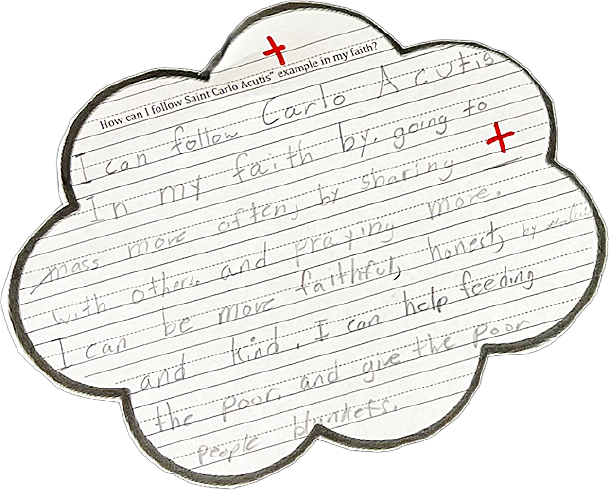 How can I follow Saint Carlo Acutis" example in my faith?
I can follow Carlo Acutis
In my faith by, going to
mass more often, by sharing
with others, and praying more.
I can be more faithful, honest, by
and kind. I can help feeding
the poor, and give the poor
people blankets.